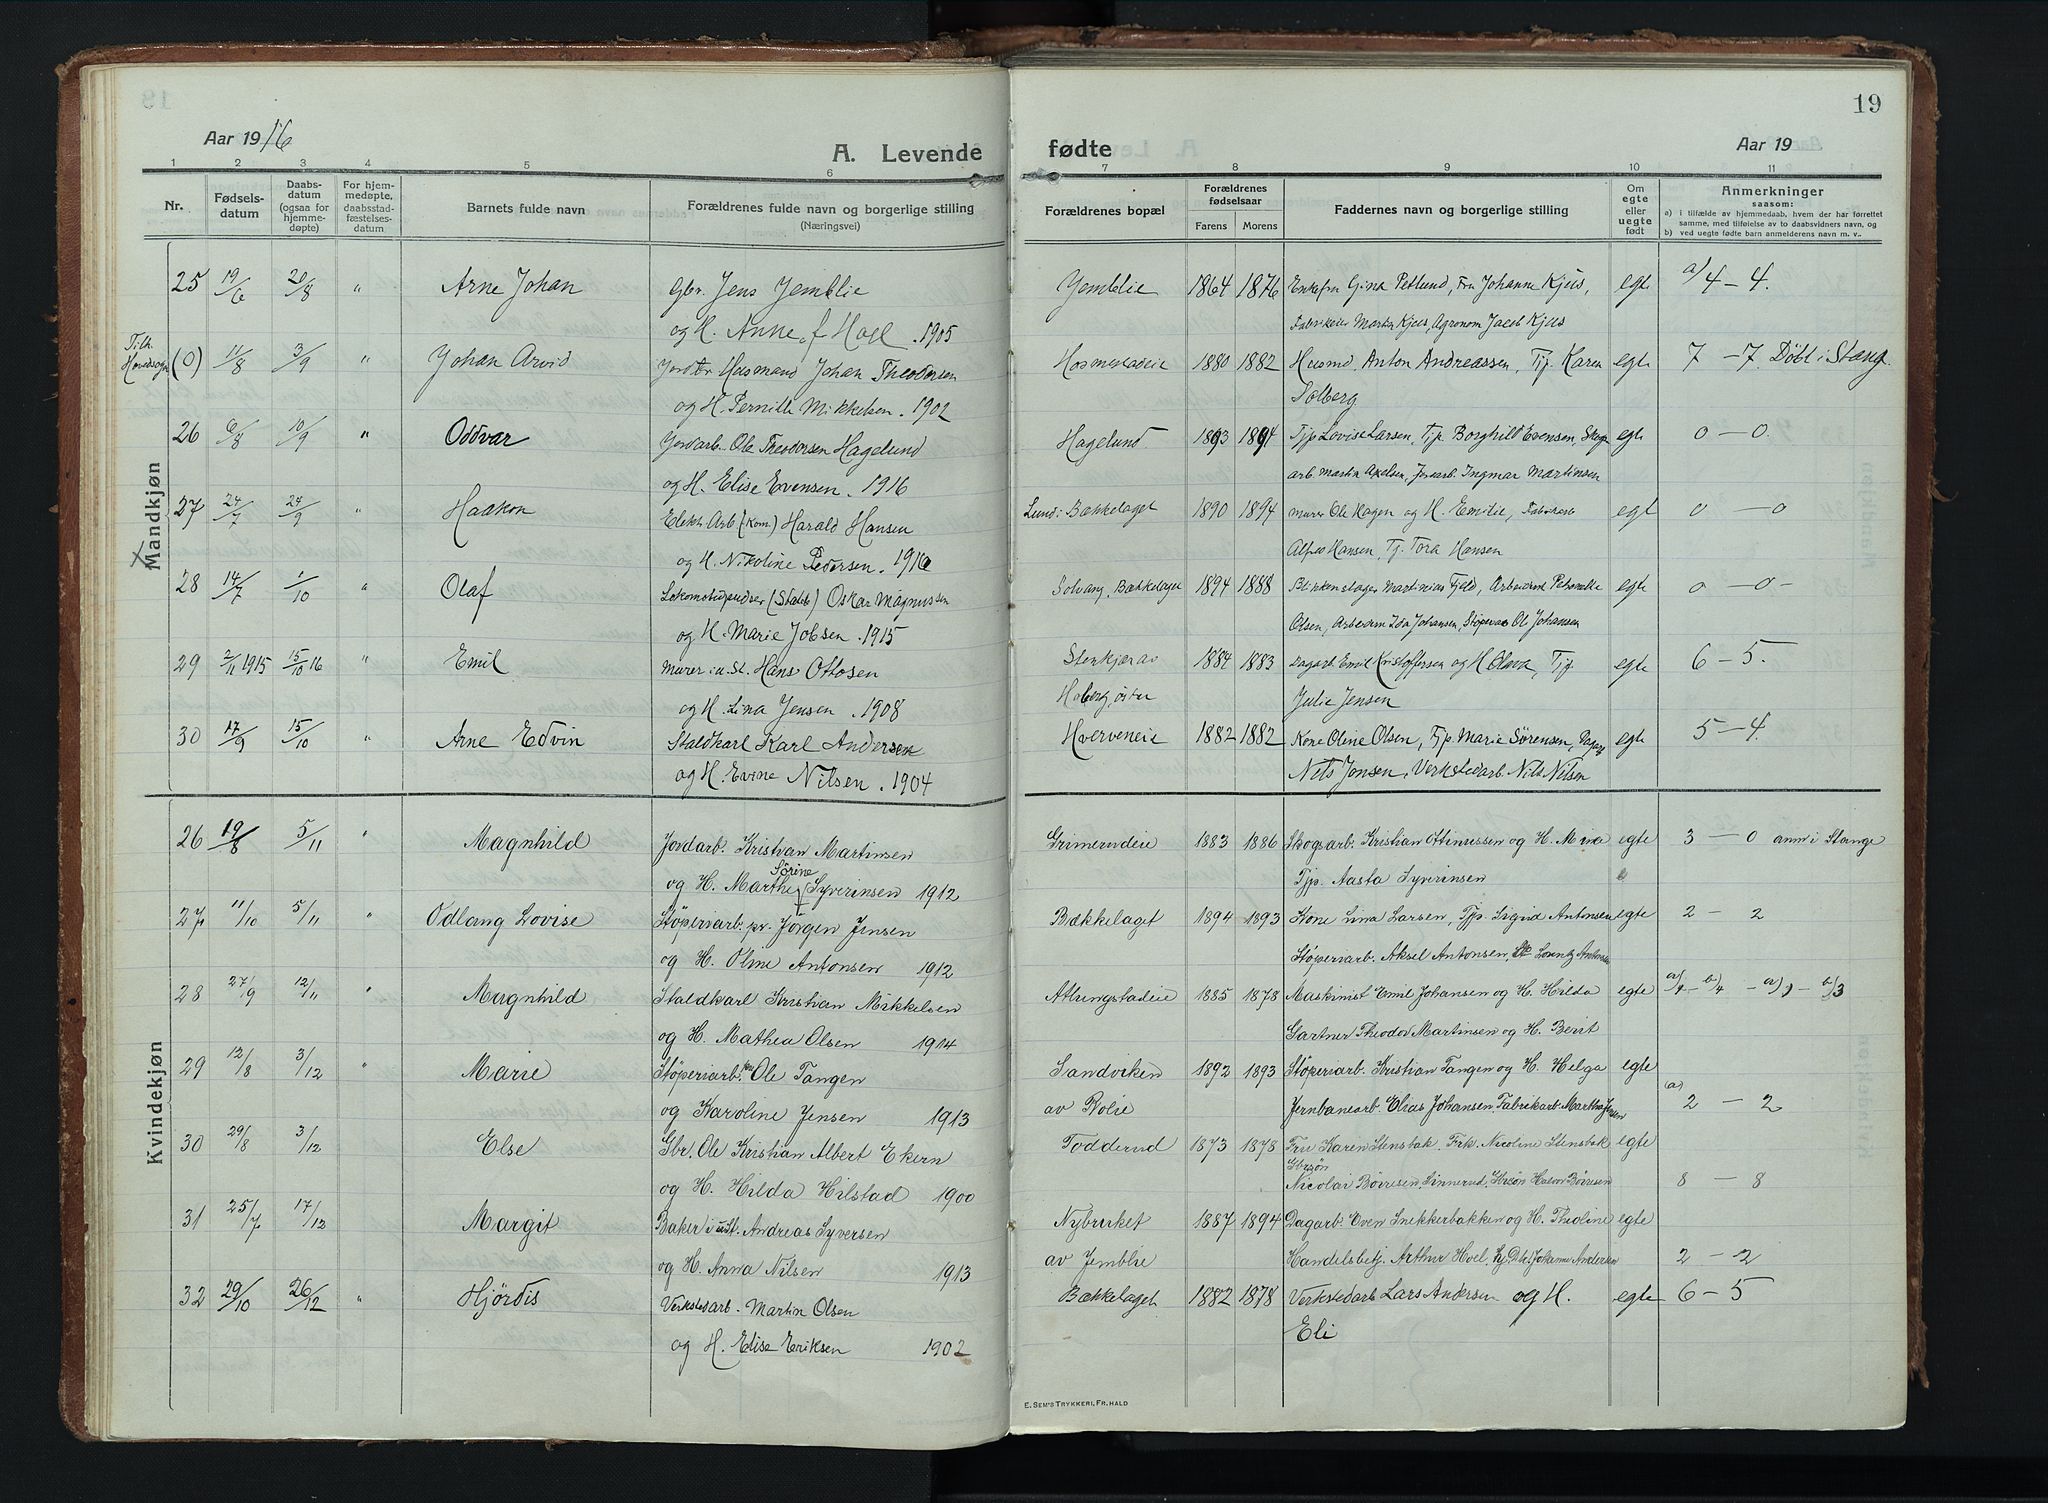 19
Aar 1916
A. Levende fødte
Aar 19
1 2 3 4 5 6 7 8 9 10 11
Nr.
Fødselsdatum
Daabsdatum (ogsaa for hjemmedøpte)
For hjemmedøpte, daabsstadfæstelsesdatum
Barnets fulde navn
Forældrenes fulde navn og borgerlige stilling
(Næringsvei)
Forældrenes bopæl
Forældrenes fødselsaar
Farens Morens
Faddernes navn og borgerlige stilling
Om egte eller uegte født
Anmerkninger
saasom:
a) i tilfælde av hjemmedaab, hvem der har forrettet
samme, med tilføielse av to daabsvidners navn, og
b) ved uegte fødte barn anmelderens navn m. v.
Mandkjøn
25 19/6 20/8 " Arne Johan Gbr. Jens Jemblie Jemblie 1864 1876 Enkefru Gina Petlund, Fru Johanne Kjus, egte a/ 4 - 4.
og H. Anne f. Hoel . 1905 Fabrikeier Martin Kjus, Agronom Jacob Kjus
(0) 11/8 3/9 " Johan Arvid Husmand Johan Theodorsen 1880 1882 Husmd. Anton Andreassen, Tj. Karen egte 7 - 7. Døbt i Stange
og H. Pernille Mikkelsen . 1902 Solberg
26 6/8 10/9 " Oddvar Ole Theodorsen Hagelund Hagelund 1893 1894 Tjp Lovise Larsen, Tjp. Borghild Evensen, Skogs egte 0 - 0.
og H. Elise Evensen . 1916 arb. Martin Axelsen, Jordarb. Ingmar Martinsen
27 24/7 24/9 " Haakon Elekt. Arb (Kom.) Harald Hansen Lund: Bækkelaget 1890 1894 Murer Ole Hagen og H. Emilie, Fabrikarb egt 0 - 0
og H. Nikoline Pedersen . 1916 Alfred Hansen, Tj. Tora Hansen
28 14/7 1/10 " Olaf Lokomotivpudser (Statsb) Oskar Magnussen Solvang, Bækkelaget 1894 1888 Blikkenslager Martinius Fjeld, Arbeiderske Petronelle egte 0 - 0 -
og H. Marie Jobsen . 1915 Olsen, Ida Johansen, Ole Johansen
29 2/11 1915 15/10 16 " Emil Murer i u. St. Hans Ottosen Stenkjær av 1884 1883 Dagarb. Emil Kristoffersen og H Olava, Tjp. egte 6 - 5.
og H. Lina Jensen . 1908 Hoberg, østre Julie Jensen
30 17/9 15/10 " Arne Edvin Staldkarl Karl Andersen Hverveneie 1882 1882 Kone Oline Olsen, Tjp. Marie Sørensen, Dagarb egte 5 - 4.
og H. Evine Nilsen . 1904 Nils Jensen, Verkstedarb. Nils Nilsen
Kvindekjøn
26 19/8 5/11 " Magnhild Jordarb. Kristian Martinsen Grimerudeie 1883 1886 Skogsarb. Kristian Ottinussen og H. Mina egte 3 - 0 anm i Stange
og H. Marthe Sørine Syverinsen 1912 Tjp. Aasta Syverinsen
27 11/10 5/11 " Odlaug Lovise Støperiarb. pr. Jørgen Jensen Bækkelaget 1894 1893 Kone Lina Larsen, Tjp. Sigrid Antonsen egte 2 - 2
og H. Oline Antonsen 1912 Støperiarb. Aksel Antonsen, Lorentz Antonsen
28 27/9 12/11 " Magnhild Staldkarl Kristian Mikkelsen Atlungstadeie 1885 1878 Maskinist Emil Johansen og H. Hilda egte
og H. Mathea Olsen 1914 Gartner Theodor Martinsen og H. Berit
29 12/8 3/12 " Marie Støperiarb. Ole Tangen Sandviken 1892 1893 Støperiarb. Kristian Tangen og H. Helga egte
og Karoline Jensen 1913 av Rolie Jernbanearb. Elias Johansen. Fabrikarb. Martha Jensen (a) 2 - 2
30 29/8 3/12 Else Gbr. Ole Kristian Albert Ekern Todderud 1873 1878 Fru Karen Stensbak. Frk. Nicoline Stensbak egte
og H. Hilda Hilstad 1900 Gbrsøn Nicolai Børresen, Sinnerud, Halvor Børresen 8 - 8
31 25/7 17/12 Margit Baker i u St. Andreas Syversen Nybruket 1887 1894 Dagarb. Even Snekkerbakken og H. Theoline egte
og H. Anna Nilsen 1913 av Jemblie Handelsbetj. Arthur Hoel, Johanne Andersen 2 - 2
32 29/10 26/12 " Hjørdis Verkstedarb. Martin Olsen Bækkelaget 1882 1878 Verkstedarb Lars Andersen og H. egte 6 - 5
og H. Elise Eriksen 1902 Eli
E. SEM'S TRYKKERI, FR.HALD